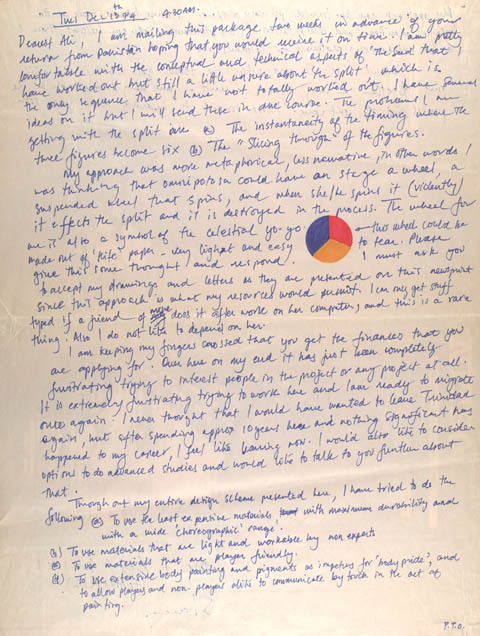 Tues Dec 13th 94 4:30AM.
Dearest Ali, I am mailing this package two weeks in advance of your
return from pakistan hoping that you would receive it on time. I am pretty
comfortable with the conceptual and technical aspects of "The Sud" that I
have worked out but still a little unsure about "the split" which is
the only sequence that I have not totally worked out. I have several
ideas on it but I will send these in due course. The problems I am
getting with the split are (a) The instantaneity of the timing where the
three figures become six (b) The "slicing through" of the figures.
My approach was more metaphorical, less narrative, in other words I
was thinking that omnipotosa could have on stage a wheel, a
suspended wheel that spins, and when she/he spins it (violently)
it effects the split and it is destroyed in the process. The wheel for
me is also a symbol of the celestial yo-yo. → this wheel could be
made out of 'kite' paper - very light and easy to tear. Please
give this some thought and respond. I must ask you
to accept my drawings and letters as they are presented on this newsprint
since this approach is what my resources would permit. I can my get stuff
typed if a friend of mine does it after work on her computer, and this is a rare
thing. Also I do not like to depend on her.
I am keeping my fingers crossed that you get the finances that you
are applying for. Over here on my end it has just been completely
frustrating trying to interest people in the project or any project at all.
It is extremely frustrating trying to work here and I am ready to migrate
once again. I never thought that I would have wanted to leave Trinidad
again, but after spending approx 10 years here and nothing significant has
happened to my career, I feel like leaving now. I would also like to consider
options to do advanced studies and would like to talk to you further about
that.
Through out my entire design scheme presented here, I have tried to do the
following (a) To use the least expensive materials, with maximum durability and
with a wide 'choreographic' range.
(b) To use materials that are light and workable by non experts
(c) To use materials that are player friendly.
(d) To use extensive body painting and pigments as impetus for 'body pride', and
to allow players and non-players alike to communicate by touch in the act of
painting.
P.T.O.